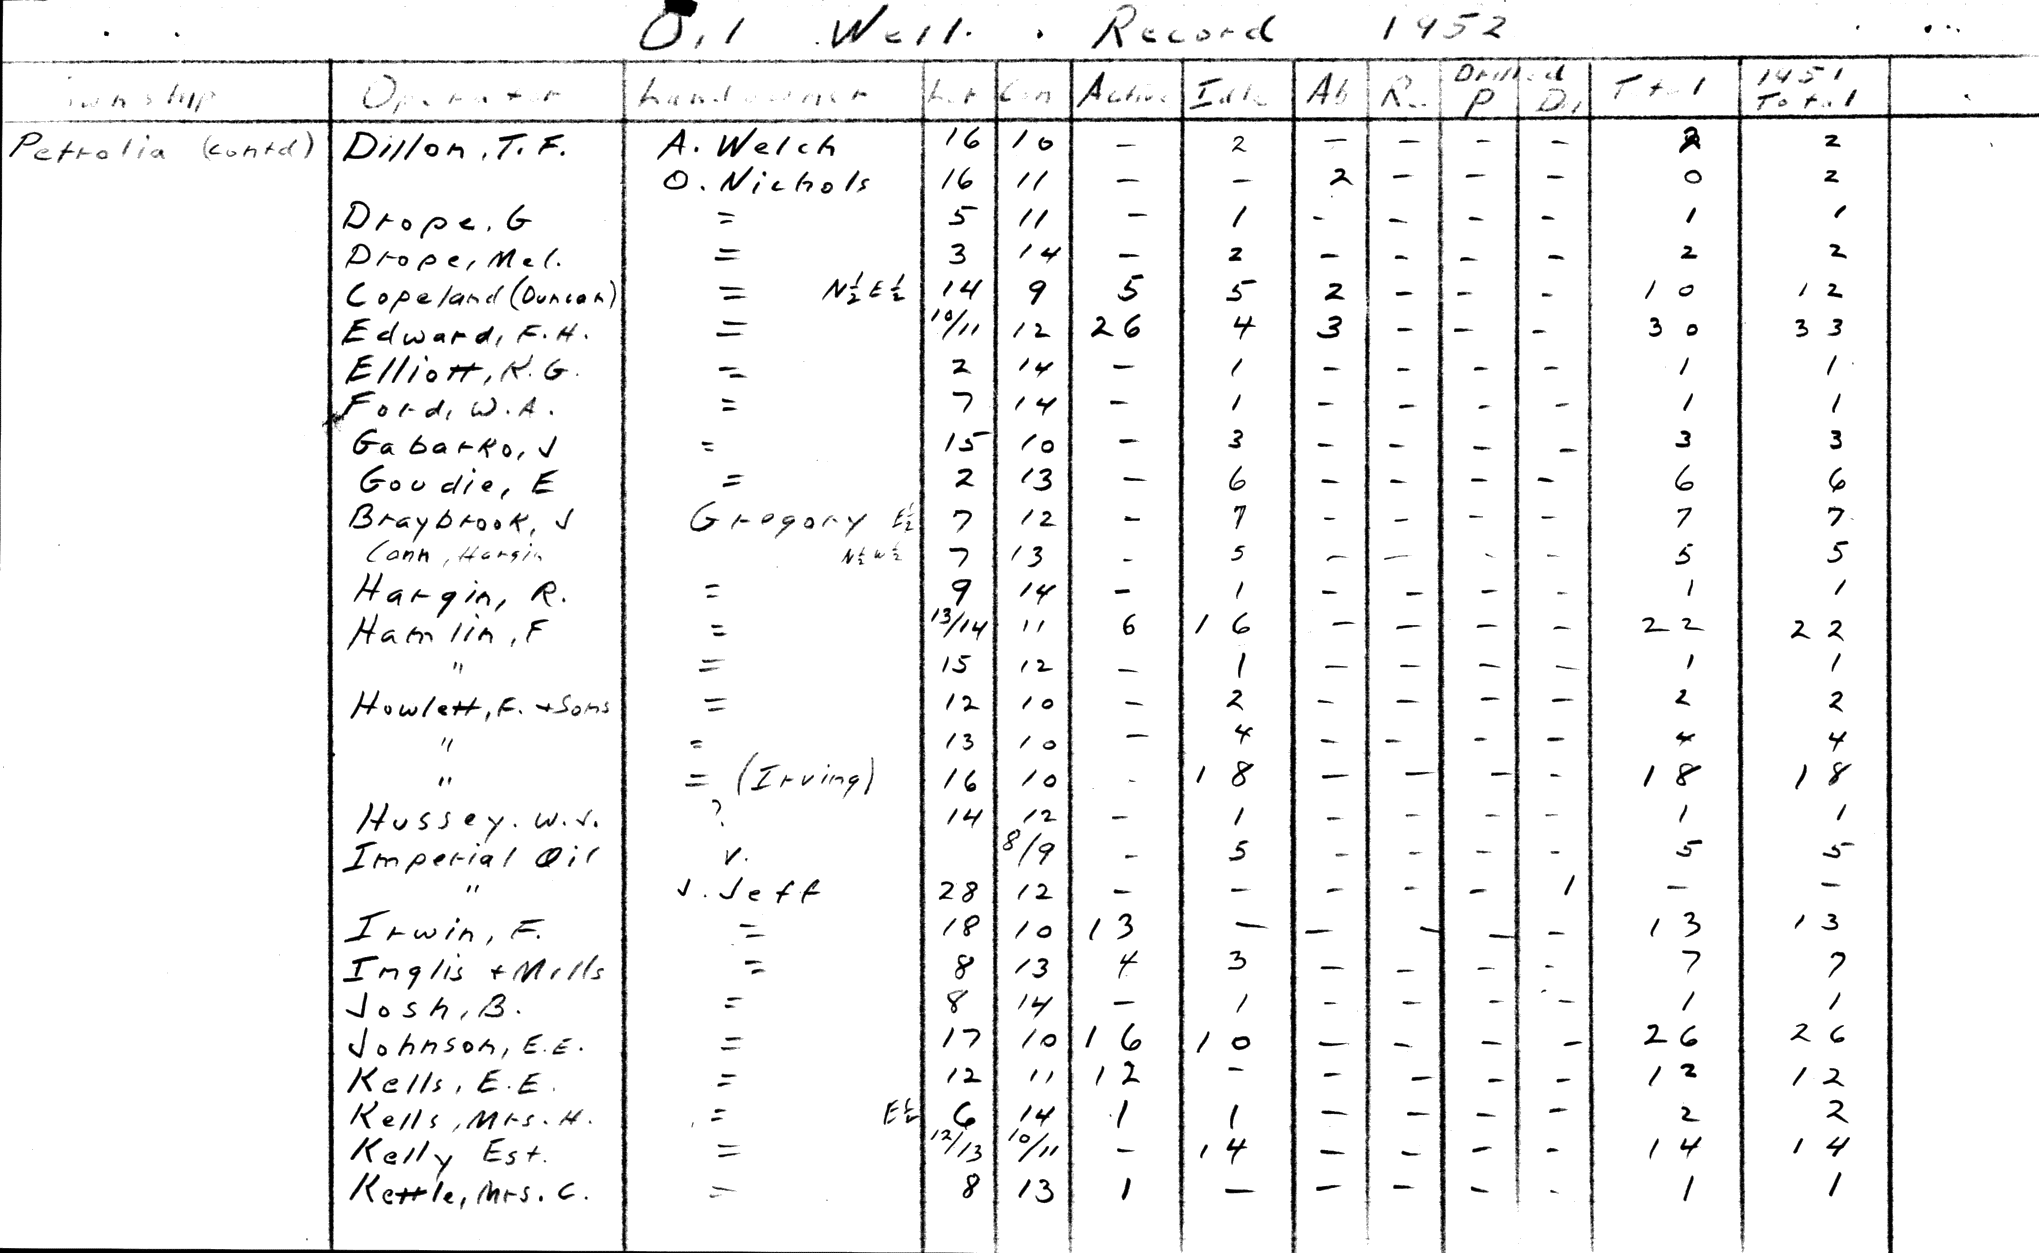 Oil Well Record 1952
Township Operator Landowner Lot Con Active Idle Ab Re Drilled P Dry Total 1951 Total
Petrolia (contd) Dillon, T. F. A. Welch 16 10 – 2 – – – – 2 2
O. Nichols 16 11 – – 2 – – – 0 2
Drope, G = 5 11 – 1 - - - - 1 1
Drope, Mel. = 3 14 – 2 – – – – 2 2
Copeland (Duncan) = N½ E½ 14 9 5 5 2 – – - 10 12
Edward, F. H. = 10/11 12 26 4 3 – – - 30 33
Elliott, K. G. = 2 14 – 1 – – – – 1 1
Ford, W. A. = 7 14 – 1 – – - – 1 1
Gabarko, J = 15 10 – 3 – – – – 3 3
Goudie, E = 2 13 – 6 – – – – 6 6
Braybrook, J Gregory E½ 7 12 – 7 - - - - 7 7
Conn, Hargin N½ W½ 7 13 - 5 – – - - 5 5
Hargin, R. = 9 14 – 1 – – – - 1 1
Hamlin, F = 13/14 11 6 16 – – – – 22 22
" = 15 12 – 1 – – – – 1 1
Howlett, F. + Sons = 12 10 – 2 – – – – 2 2
" = 13 10 – 4 – – – – 4 4
" = (Irving) 16 10 - 18 – – – - 18 18
Hussey. W. J. ? 14 12 – 1 – – - - 1 1
Imperial Oil v. 8/9 – 5 - – - - 5 5
" J. Jeff 28 12 – – – – – 1 – –
Irwin, F. = 18 10 13 – – – – – 13 13
Inglis + Mills = 8 13 4 3 – – – - 7 7
Josh, B. = 8 14 – 1 – – – – 1 1
Johnson, E. E. = 17 10 16 10 – – – – 26 26
Kells, E. E. = 12 11 12 – – – – – 12 12
Kells, Mrs. H. = E½ 6 14 1 1 – – – – 2 2
Kelly Est. = 12/13 10/11 – 14 – – – – 14 14
Kettle, Mrs. C. = 8 13 1 – – – – - 1 1